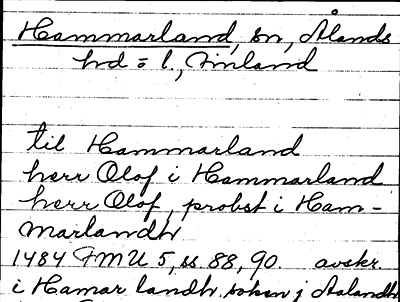 Hammarland, sn, Ålands
hd = l, Finland
til Hammarland
herr Olof i Hammarland
herr Olof, probst i Ham-
marlandh
1484 FMU 5, ss. 88, 90. avskr.
i Hamar landh. soken j Aalandh